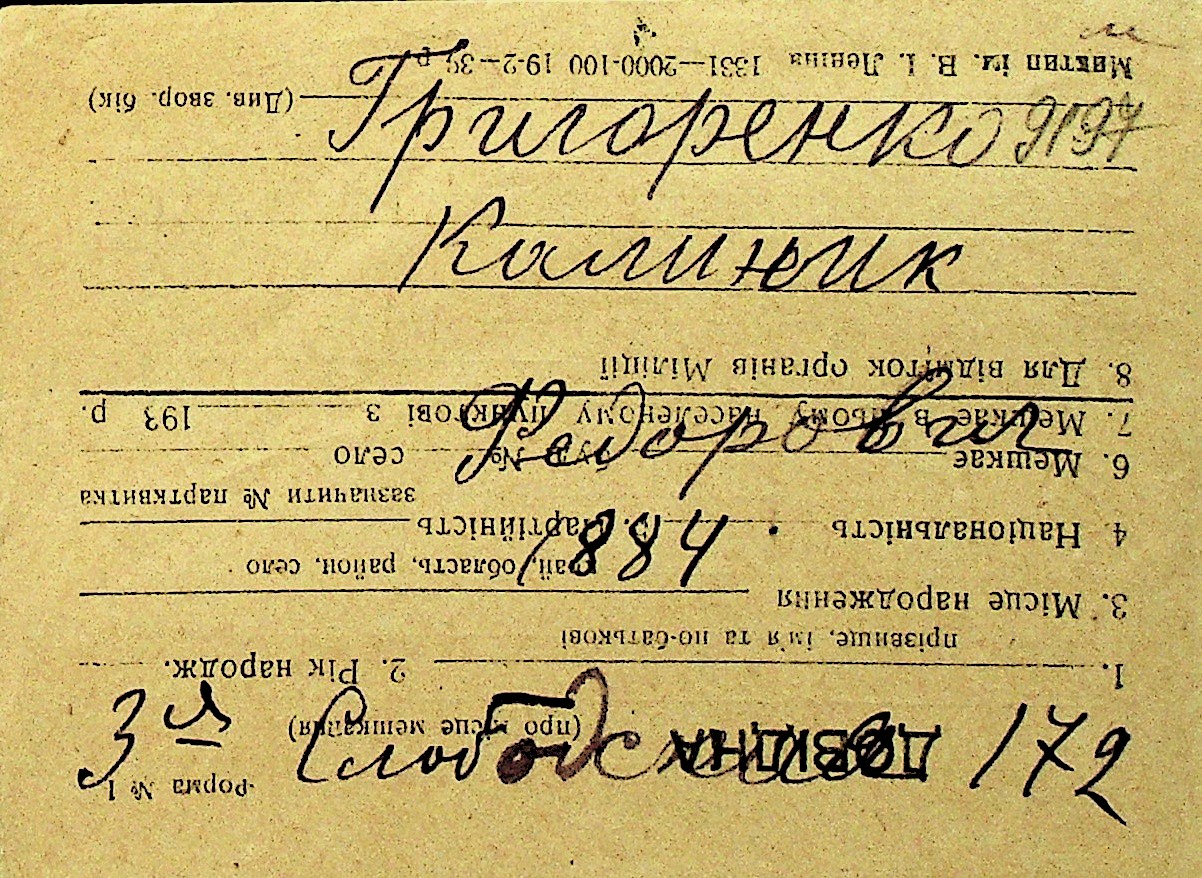 Григоренко 9197
Калиник
Федорович
1884.
3я Слободская 172
Форма № 1
ДОВІДКА
(про місце мешкання)
1. 2. Рік народж.
прізвище, ім'я та по-батькові
3. Місце народження
край, область, район, село
4 Національність 5. Партійність
зазначити № партквитка
6. Мешкає вул. № село
7. Мешкає в ньому населеному пунктові з 193 р.
8. Для відміток органів Міліції
(Див. звор. бік)
Миктип ім. В. І. Леніна 1331—2000-100 19-2-39 р.